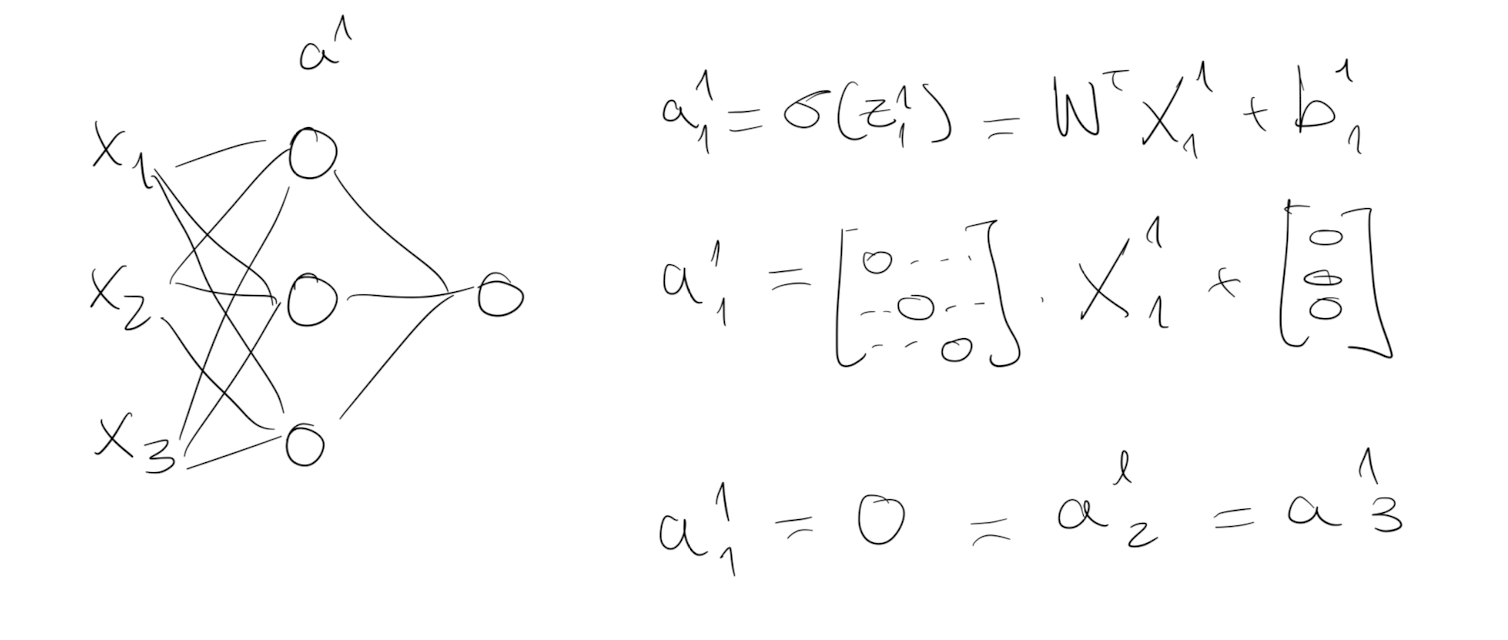 a¹
x₁
x₂
x₃
a₁¹ = σ(z₁¹) = Wᵀ X₁¹ + b₁¹
a₁¹ = [0 - - - -- 0 -- -- -- 0] · X₁¹ + [0 0 0]
a₁¹ = 0 = a₂ˡ = a₃¹